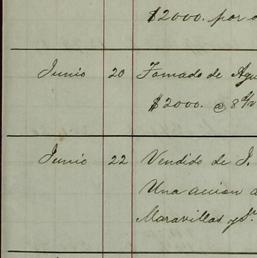 $2000. por
Junio 20 Tomado de Agu
$2000. @ 8 d/v
Junio 22 Vendido de J.
Una accion
Maravillas y